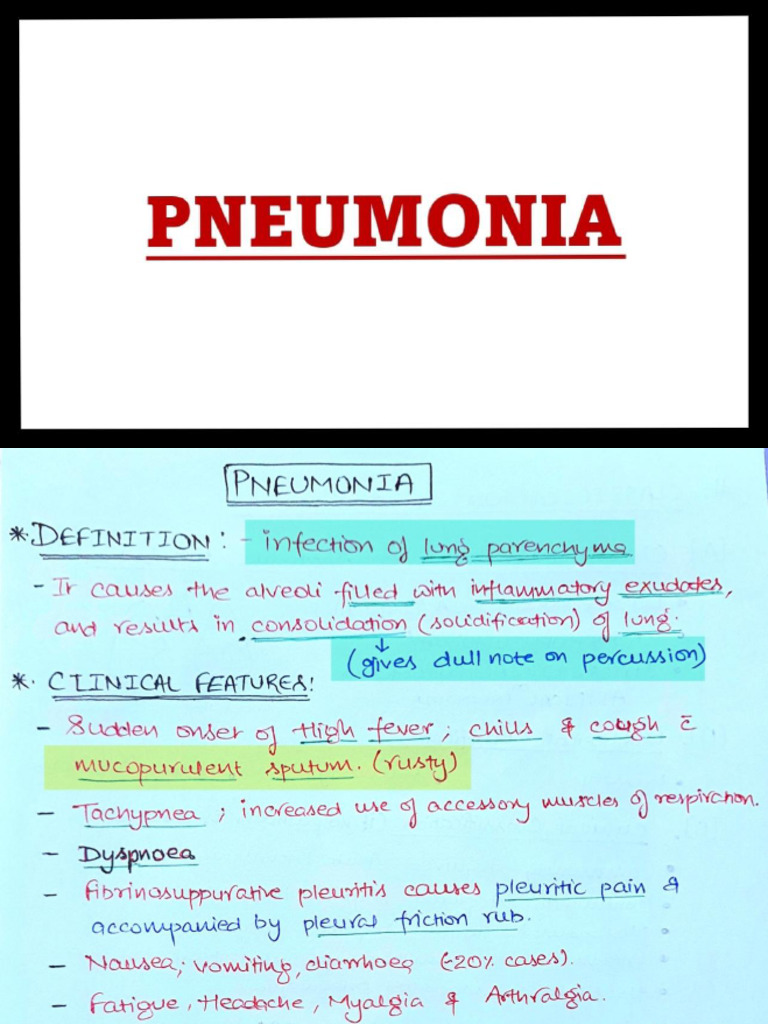 PNEUMONIA
PNEUMONIA
*DEFINITION: - infection of lung parenchyma
- It causes the alveoli filled with inflammatory exudates,
and results in consolidation (solidification) of lung.
↓
(gives dull note on percussion)
*. CLINICAL FEATURES:
- Sudden onset of High fever; chills & cough c̄
mucopurulent sputum. (rusty)
- Tachypnea; increased use of accessory muscles of respiration.
- Dyspnoea
- fibrinosuppurative pleuritis causes pleuritic pain &
accompanied by pleural friction rub.
- Nausea; vomiting, diarrhoea (~20% cases).
- Fatigue, Headache, Myalgia & Arthralgia.